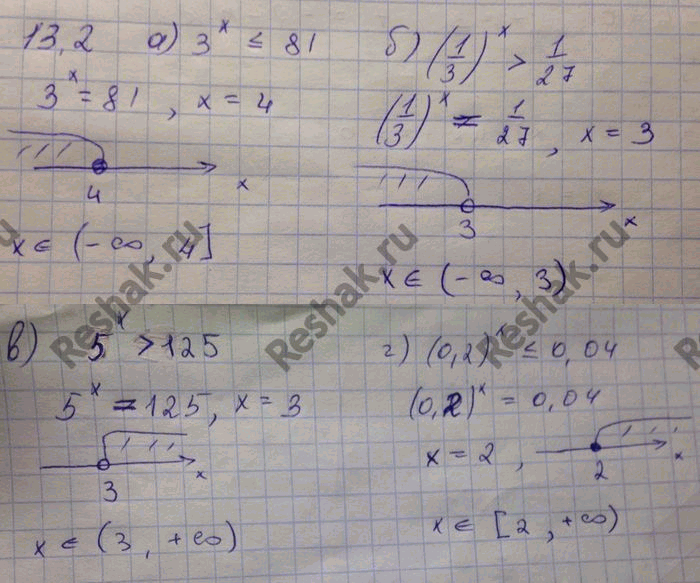 13,2 а) 3^x ≤ 81
3^x = 81 , x = 4
4
x
x ∈ (-∞, 4]
б) (1/3)^x > 1/27
(1/3)^x = 1/27 , x = 3
3
x
x ∈ (-∞, 3)
в) 5^x > 125
5^x = 125, x = 3
3
x
x ∈ (3, +∞)
г) (0,2)^x ≤ 0,04
(0,2)^x = 0,04
x = 2 ,
2
x
x ∈ [2, +∞)
Reshak.ru
Reshak.ru
Reshak.ru
Reshak.ru